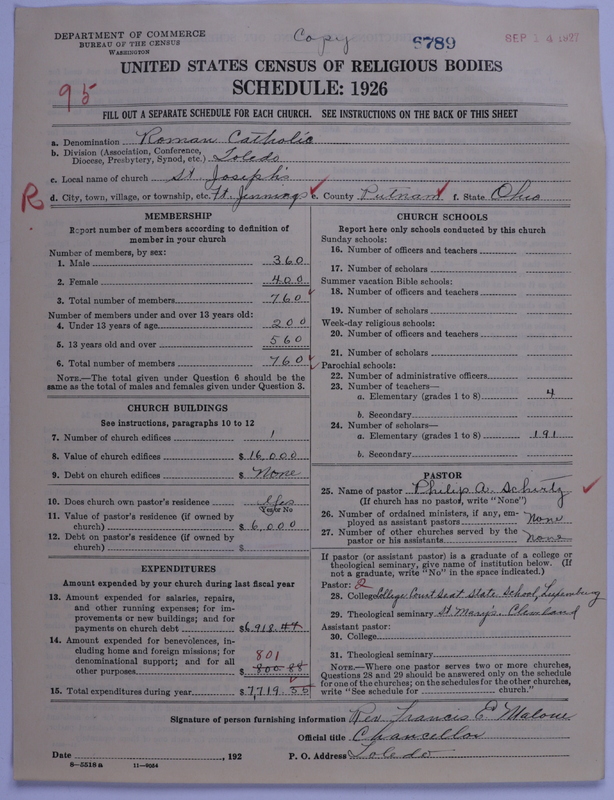 DEPARTMENT OF COMMERCE
BUREAU OF THE CENSUS
WASHINGTON
Copy
6789
SEP 14 1927
UNITED STATES CENSUS OF RELIGIOUS BODIES
SCHEDULE: 1926
95
FILL OUT A SEPARATE SCHEDULE FOR EACH CHURCH. SEE INSTRUCTIONS ON THE BACK OF THIS SHEET
a. Denomination Roman Catholic
b. Division (Association, Conference, Diocese, Presbytery, Synod, etc.) Toledo
c. Local name of church St Joseph's
R d. City, town, village, or township, etc. Ft. Jennings e. County Putnam f. State Ohio
MEMBERSHIP
Report number of members according to definition of
member in your church
Number of members, by sex:
1. Male 360
2. Female 400
3. Total number of members 760
Number of members under and over 13 years old:
4. Under 13 years of age 200
5. 13 years old and over 560
6. Total number of members 760
NOTE.—The total given under Question 6 should be the
same as the total of males and females given under Question 3.
CHURCH BUILDINGS
See instructions, paragraphs 10 to 12
7. Number of church edifices 1
8. Value of church edifices $16,000
9. Debt on church edifices $ None
10. Does church own pastor's residence Yes
Yes or No
11. Value of pastor's residence (if owned by
church) $6,000
12. Debt on pastor's residence (if owned by
church) $
EXPENDITURES
Amount expended by your church during last fiscal year
13. Amount expended for salaries, repairs,
and other running expenses; for im-
provements or new buildings; and for
payments on church debt $6,918.44
14. Amount expended for benevolences, in-
cluding home and foreign missions; for
denominational support; and for all
801
other purposes $ 800.88
15. Total expenditures during year $7,719.35
CHURCH SCHOOLS
Report here only schools conducted by this church
Sunday schools:
16. Number of officers and teachers
17. Number of scholars
Summer vacation Bible schools:
18. Number of officers and teachers
19. Number of scholars
Week-day religious schools:
20. Number of officers and teachers
21. Number of scholars
Parochial schools:
22. Number of administrative officers
23. Number of teachers—
a. Elementary (grades 1 to 8) 4
b. Secondary
24. Number of scholars—
a. Elementary (grades 1 to 8) 191
b. Secondary
PASTOR
25. Name of pastor Philip A. Schirtz
(If church has no pastor, write "None")
26. Number of ordained ministers, if any, em-
ployed as assistant pastors None
27. Number of other churches served by the
pastor or his assistants None
If pastor (or assistant pastor) is a graduate of a college or
theological seminary, give name of institution below. (If
not a graduate, write "No" in the space indicated.)
Pastor: 2
28. College College Court Seat State School, Luxemburg
29. Theological seminary St Mary's Cleveland
Assistant pastor:
30. College
31. Theological seminary
NOTE.—Where one pastor serves two or more churches,
Questions 28 and 29 should be answered only on the schedule
for one of the churches; on the schedules for the other churches,
write "See schedule for church."
Signature of person furnishing information Rev Francis E Malone
Official title Chancellor
Date , 192 P. O. Address Toledo
8—5518 a 11—9054